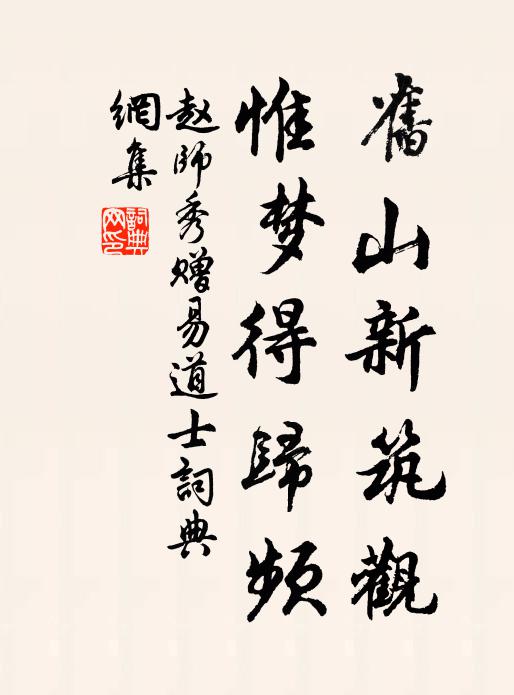 舊山新筑觀
惟梦得歸頻
赵師秀赠易道士詞典
網集
詞典
网印